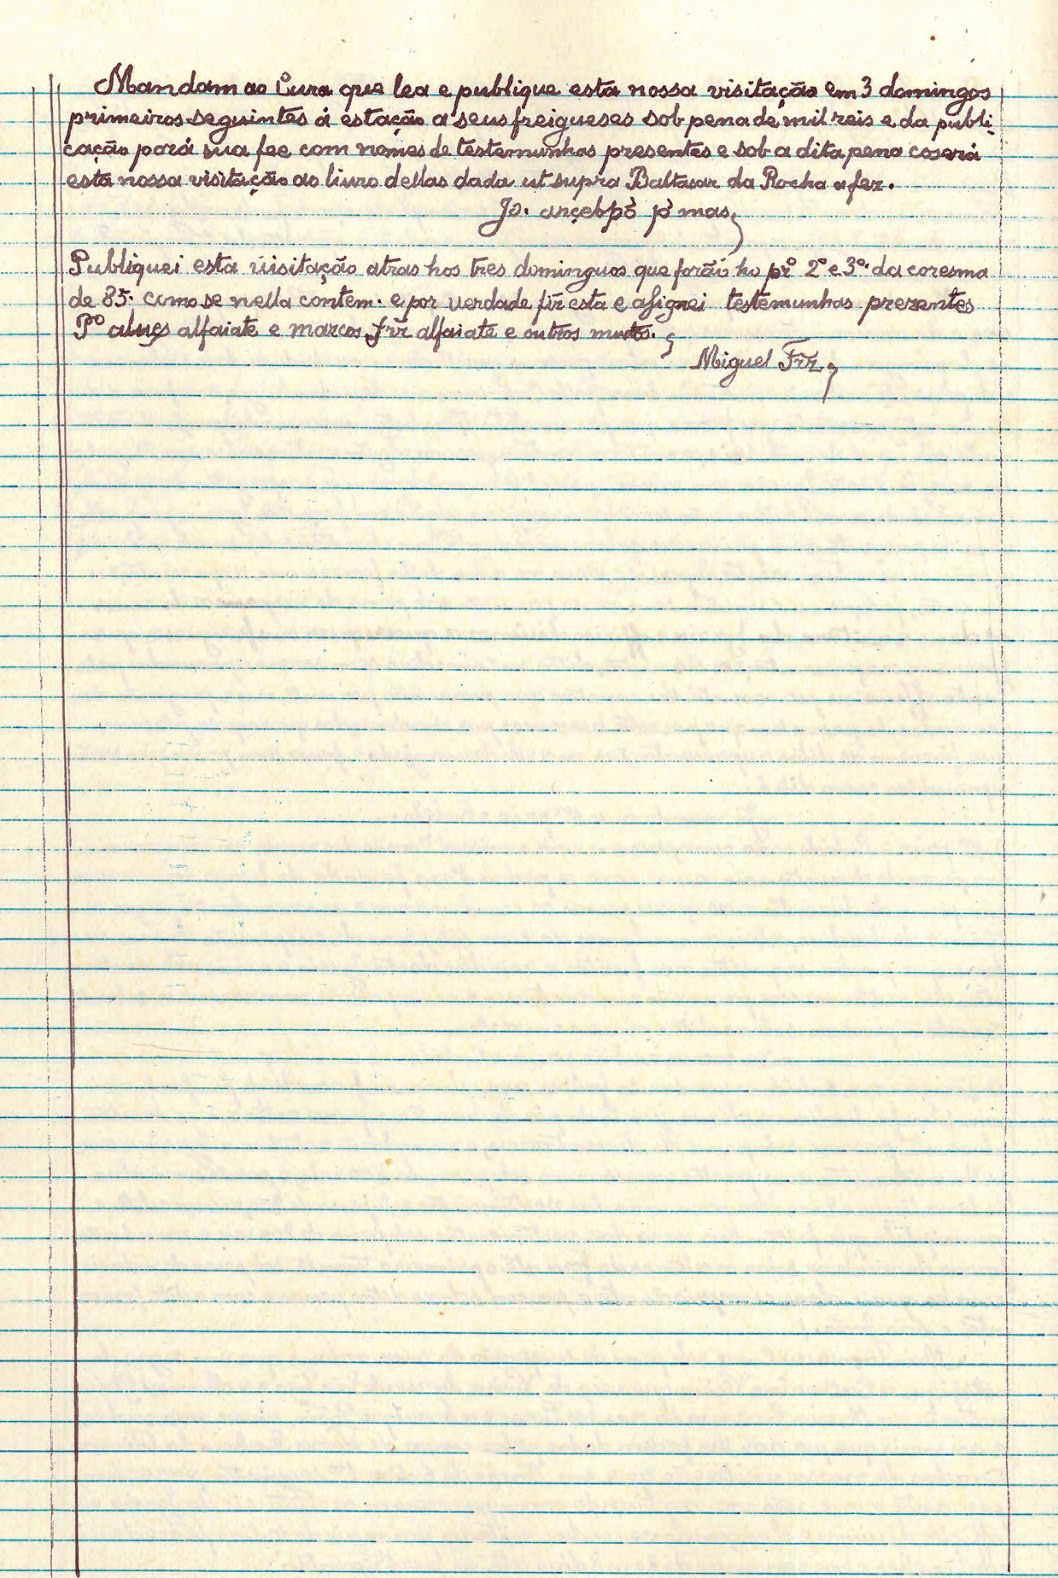 Mandam ao Cura que lea e publique esta nossa visitação em 3 domingos
primeiros seguintes á estação a seus freigueses sob pena de mil reis e da publi-
cação porá sua fee com nomes de testemunhas presentes e sob a dita pena coserá
esta nossa visitação ao livro dellas dada ut supra Baltasar da Rocha a fez.
Jo. arçebpõ pº mas,
Publiquei esta visitação atras hos tres dominguos que forão ho prº 2º e 3º. da coresma
de 85. como se nella contem. e por verdade fiz esta e asignei testemunhas prezentes
Pº alvẽs alfaiate e marcos Frz alfaiate e outros muitos.
Miguel Frz.